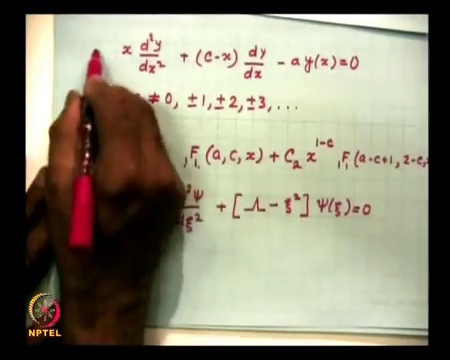 x d²y/dx² + (c-x) dy/dx - a y(x) = 0
≠ 0, ±1, ±2, ±3, ...
₁F₁ (a, c, x) + C₂ x^(1-c) ₁F₁ (a-c+1, 2-c,
²Ψ/dξ² + [Λ - ξ²] Ψ(ξ) = 0
NPTEL